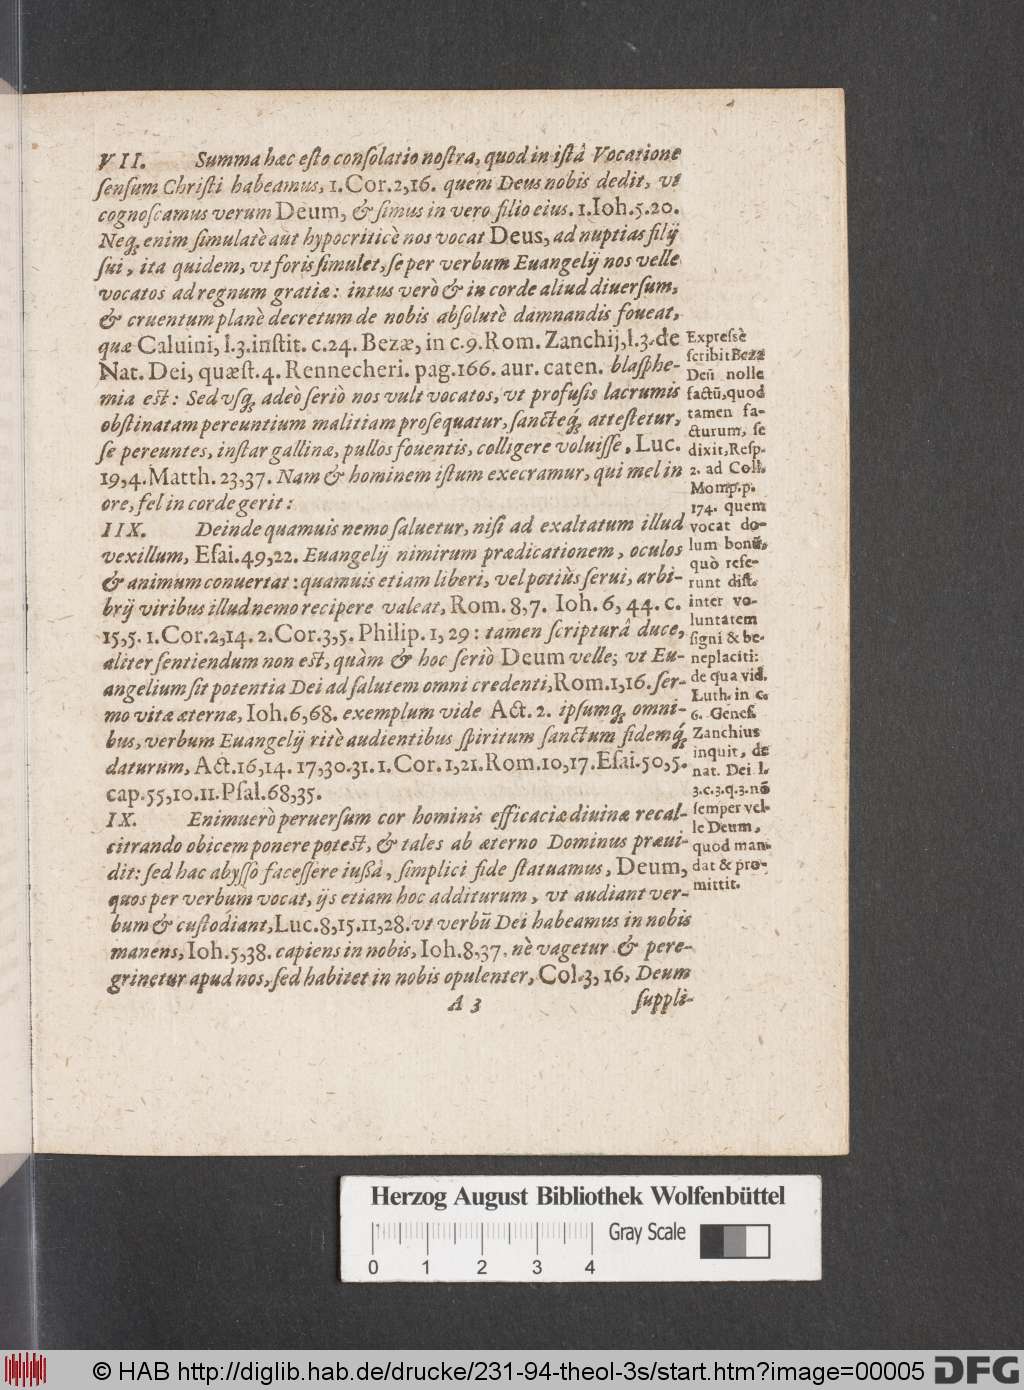 VII. Summa hæc esto consolatio nostra, quod in istâ Vocatione
sensum Christi habeamus, 1. Cor. 2,16. quem Deus nobis dedit, vt
cognoscamus verum Deum, & simus in vero filio eius. 1. Ioh. 5. 20.
Neq; enim simulatè aut hypocriticè nos vocat Deus, ad nuptias filij
sui, ita quidem, vt foris simulet, se per verbum Euangelij nos velle
vocatos ad regnum gratiæ: intus verò & in corde aliud diuersum,
& cruentum planè decretum de nobis absolutè damnandis foueat,
quæ Caluini, l.3. instit. c.24. Bezæ, in c.9. Rom. Zanchij, l.3. de
Nat. Dei, quæst. 4. Rennecheri. pag. 166. aur. caten. blasphe-
mia est: Sed vsq; adeò seriò nos vult vocatos, vt profusis lacrumis
obstinatam pereuntium malitiam prosequatur, sanctéq; attestetur,
se pereuntes, instar gallinæ, pullos fouentis, colligere voluisse, Luc.
19,4. Matth. 23,37. Nam & hominem istum execramur, qui mel in
ore, fel in corde gerit:
IIX. Deinde quamuis nemo saluetur, nisi ad exaltatum illud
vexillum, Esai. 49,22. Euangelij nimirum prædicationem, oculos
& animum conuertat: quamuis etiam liberi, vel potiùs serui, arbi-
brij viribus illud nemo recipere valeat, Rom. 8,7. Ioh. 6, 44. c.
15,5. 1. Cor. 2,14. 2. Cor. 3,5. Philip. 1, 29: tamen scripturâ duce,
aliter sentiendum non est, quàm & hoc seriò Deum velle; vt Eu-
angelium sit potentia Dei ad salutem omni credenti, Rom. 1,16. ser-
mo vitæ æternæ, Ioh. 6,68. exemplum vide Act. 2. ipsumq; omni-
bus, verbum Euangelij ritè audientibus spiritum sanctum fidemq́;
daturum, Act. 16,14. 17,30.31. 1. Cor. 1,21. Rom. 10,17. Esai. 50,5.
cap. 55,10.11. Psal. 68,35.
IX. Enimuerò peruersum cor hominis efficaciæ diuinæ recal-
citrando obicem ponere potest, & tales ab æterno Dominus præui-
dit: sed hac abysso facessere iussâ, simplici fide statuamus, Deum,
quos per verbum vocat, ijs etiam hoc additurum, vt audiant ver-
bum & custodiant, Luc. 8,15. 11,28. vt verbũ Dei habeamus in nobis
manens, Ioh. 5,38. capiens in nobis, Ioh. 8,37. nè vagetur & pere-
grinetur apud nos, sed habitet in nobis opulenter, Col. 3, 16, Deum
A 3 suppli-
Expressè
scribit Beza
Deũ nolle
factũ, quod
tamen fa-
cturum, se
dixit, Resp.
2. ad Coll.
Momp. p.
174. quem
vocat do-
lum bonũ,
quò refe-
runt dist.
inter vo-
luntatem
signi & be-
neplaciti:
de qua vid.
Luth. in c.
6. Genes.
Zanchius
inquit, de
nat. Dei l.
3. c. 3. q. 3. nõ
semper vel-
le Deum,
quod man-
dat & pro-
mittit.
Herzog August Bibliothek Wolfenbüttel
Gray Scale
0 1 2 3 4
© HAB http://diglib.hab.de/drucke/231-94-theol-3s/start.htm?image=00005
DFG